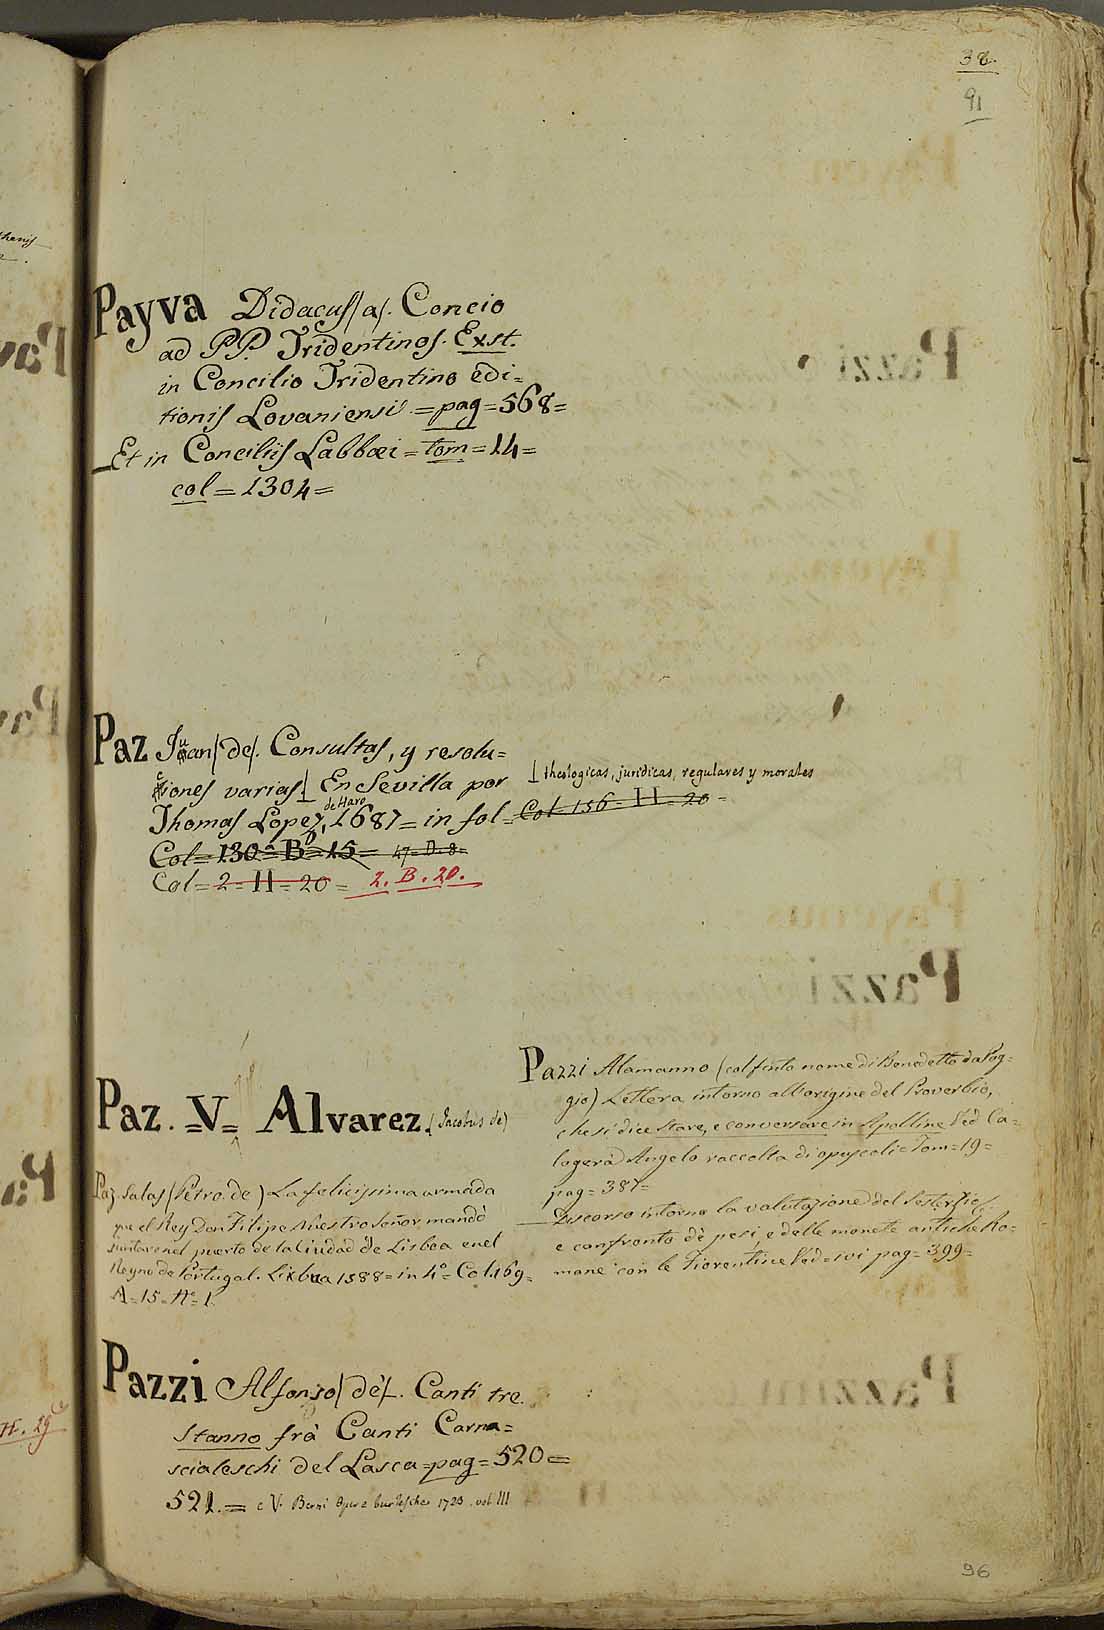 38.
91
Payva Didacus /a/. Concio
ad PP. Tridentinos. Exst.
in Concilio Tridentino edi=
tionis Lovaniensis = pag = 568=
_Et in Conciliis Labbæi = tom = 14 =
col = 1304 =
Paz Juan /de/. Consultas, y resolu=
ciones varias ⊥ En Sevilla por
⊥ theologicas, juridicas, regulares y morales
Thomas Lopez de Haro, 1687 = in fol =
Col = 156 = H = 20 =
Col = 130 = B = 15 = 47 = D. 8 =
Col = 2 = H = 20 = 2. B. 20.
Paz. =V= Alvarez (Jacobus de)
Paz Salas (Petro de) La felicissima armada
que el Rey Don Filipe Nuestro Señor mandò
juntar en el puerto de la Ciudad de Lisboa en el
Reyno de Portugal. Lixbua 1588 = in 4º = Col. 169 =
A = 15 = Nº = 1.
Pazzi Alamanno (col finto nome di Benedetto da Pog=
gio) Lettera intorno all'origine del Proverbio,
che si dice Stare, e conversare in Apolline Ved Ca=
logerà Angelo raccolta di opuscoli = Tom = 19 =
pag = 387 =
_Discorso intorno la valutazione del Sesterzio,
e confronto dè pesi, e delle monete antiche Ro=
mane con le Fiorentine Ved = ivi pag = 399 =
Pazzi Alfonso /dè/. Canti tre.
Stanno frà Canti Carna=
scialeschi del Lasca = pag = 520 =
521. = e V. Berni Opere burlesche 1723. vol III
96